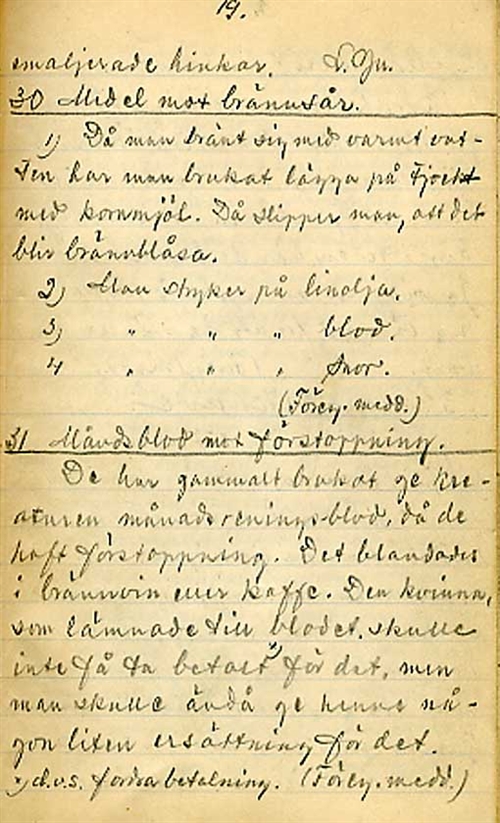 19.
emaljerade hinkar. S. Yu.
30 Medel mot brännsår.
1) Då man bränt sig med varmt vat-
ten har man brukat lägga på tjockt
med kornmjöl. Då slipper man, att det
blir brännblåsa.
2) Man stryker på linolja.
3) " " " blod.
4 " " " snor.
(Föreg. medd.)
31 Månadsblod mot förstoppning.
De har gammalt brukat ge kre-
aturen månadsreningsblod, då de
haft förstoppning. Det blandades
i brännvin eller kaffe. Den kvinna,
som lämnade till blodet, skulle
inte få ta betalt x) för det, men
man skulle ändå ge henne nå-
gon liten ersättning för det.
x) d.v.s. fordra betalning. (Föreg. medd.)